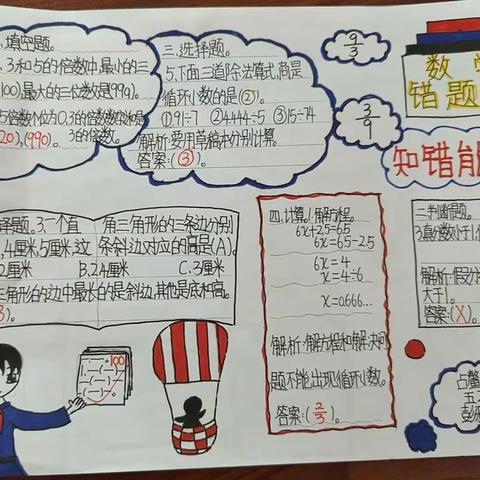 填空题。
3和5的倍数中,最小的三
100),最大的三位数是(990)。
5倍数个位为0,3的倍数数和是
3的倍数。
20),(990)。
三.选择题。
5.下面三道除法算式,商是
循环小数的是(②)。
①91÷7 ②44.4÷5 ③15÷74
解析:要用草稿本分别计算。
答案:(③)。
9/3
3/9
数学
错题
知错能
择题。3.一个直角三角形的三条边分别
,4厘米,5厘米,这条斜边对应的高是(A)。
2厘米 B.2.4厘米 C.3厘米
三角形的边中最长的是斜边,其他是底和高。
四.计算.1.解方程。
6x+2.5=65
6x=65-2.5
6x=4
x=4÷6
x=0.666...
解析:解方程和解决问
题不能出现循环小数。
答案:(2/3)。
二.判断题。
3.真分数小于1,假
解析:假分
大于1。
答案:(X)。
100
五